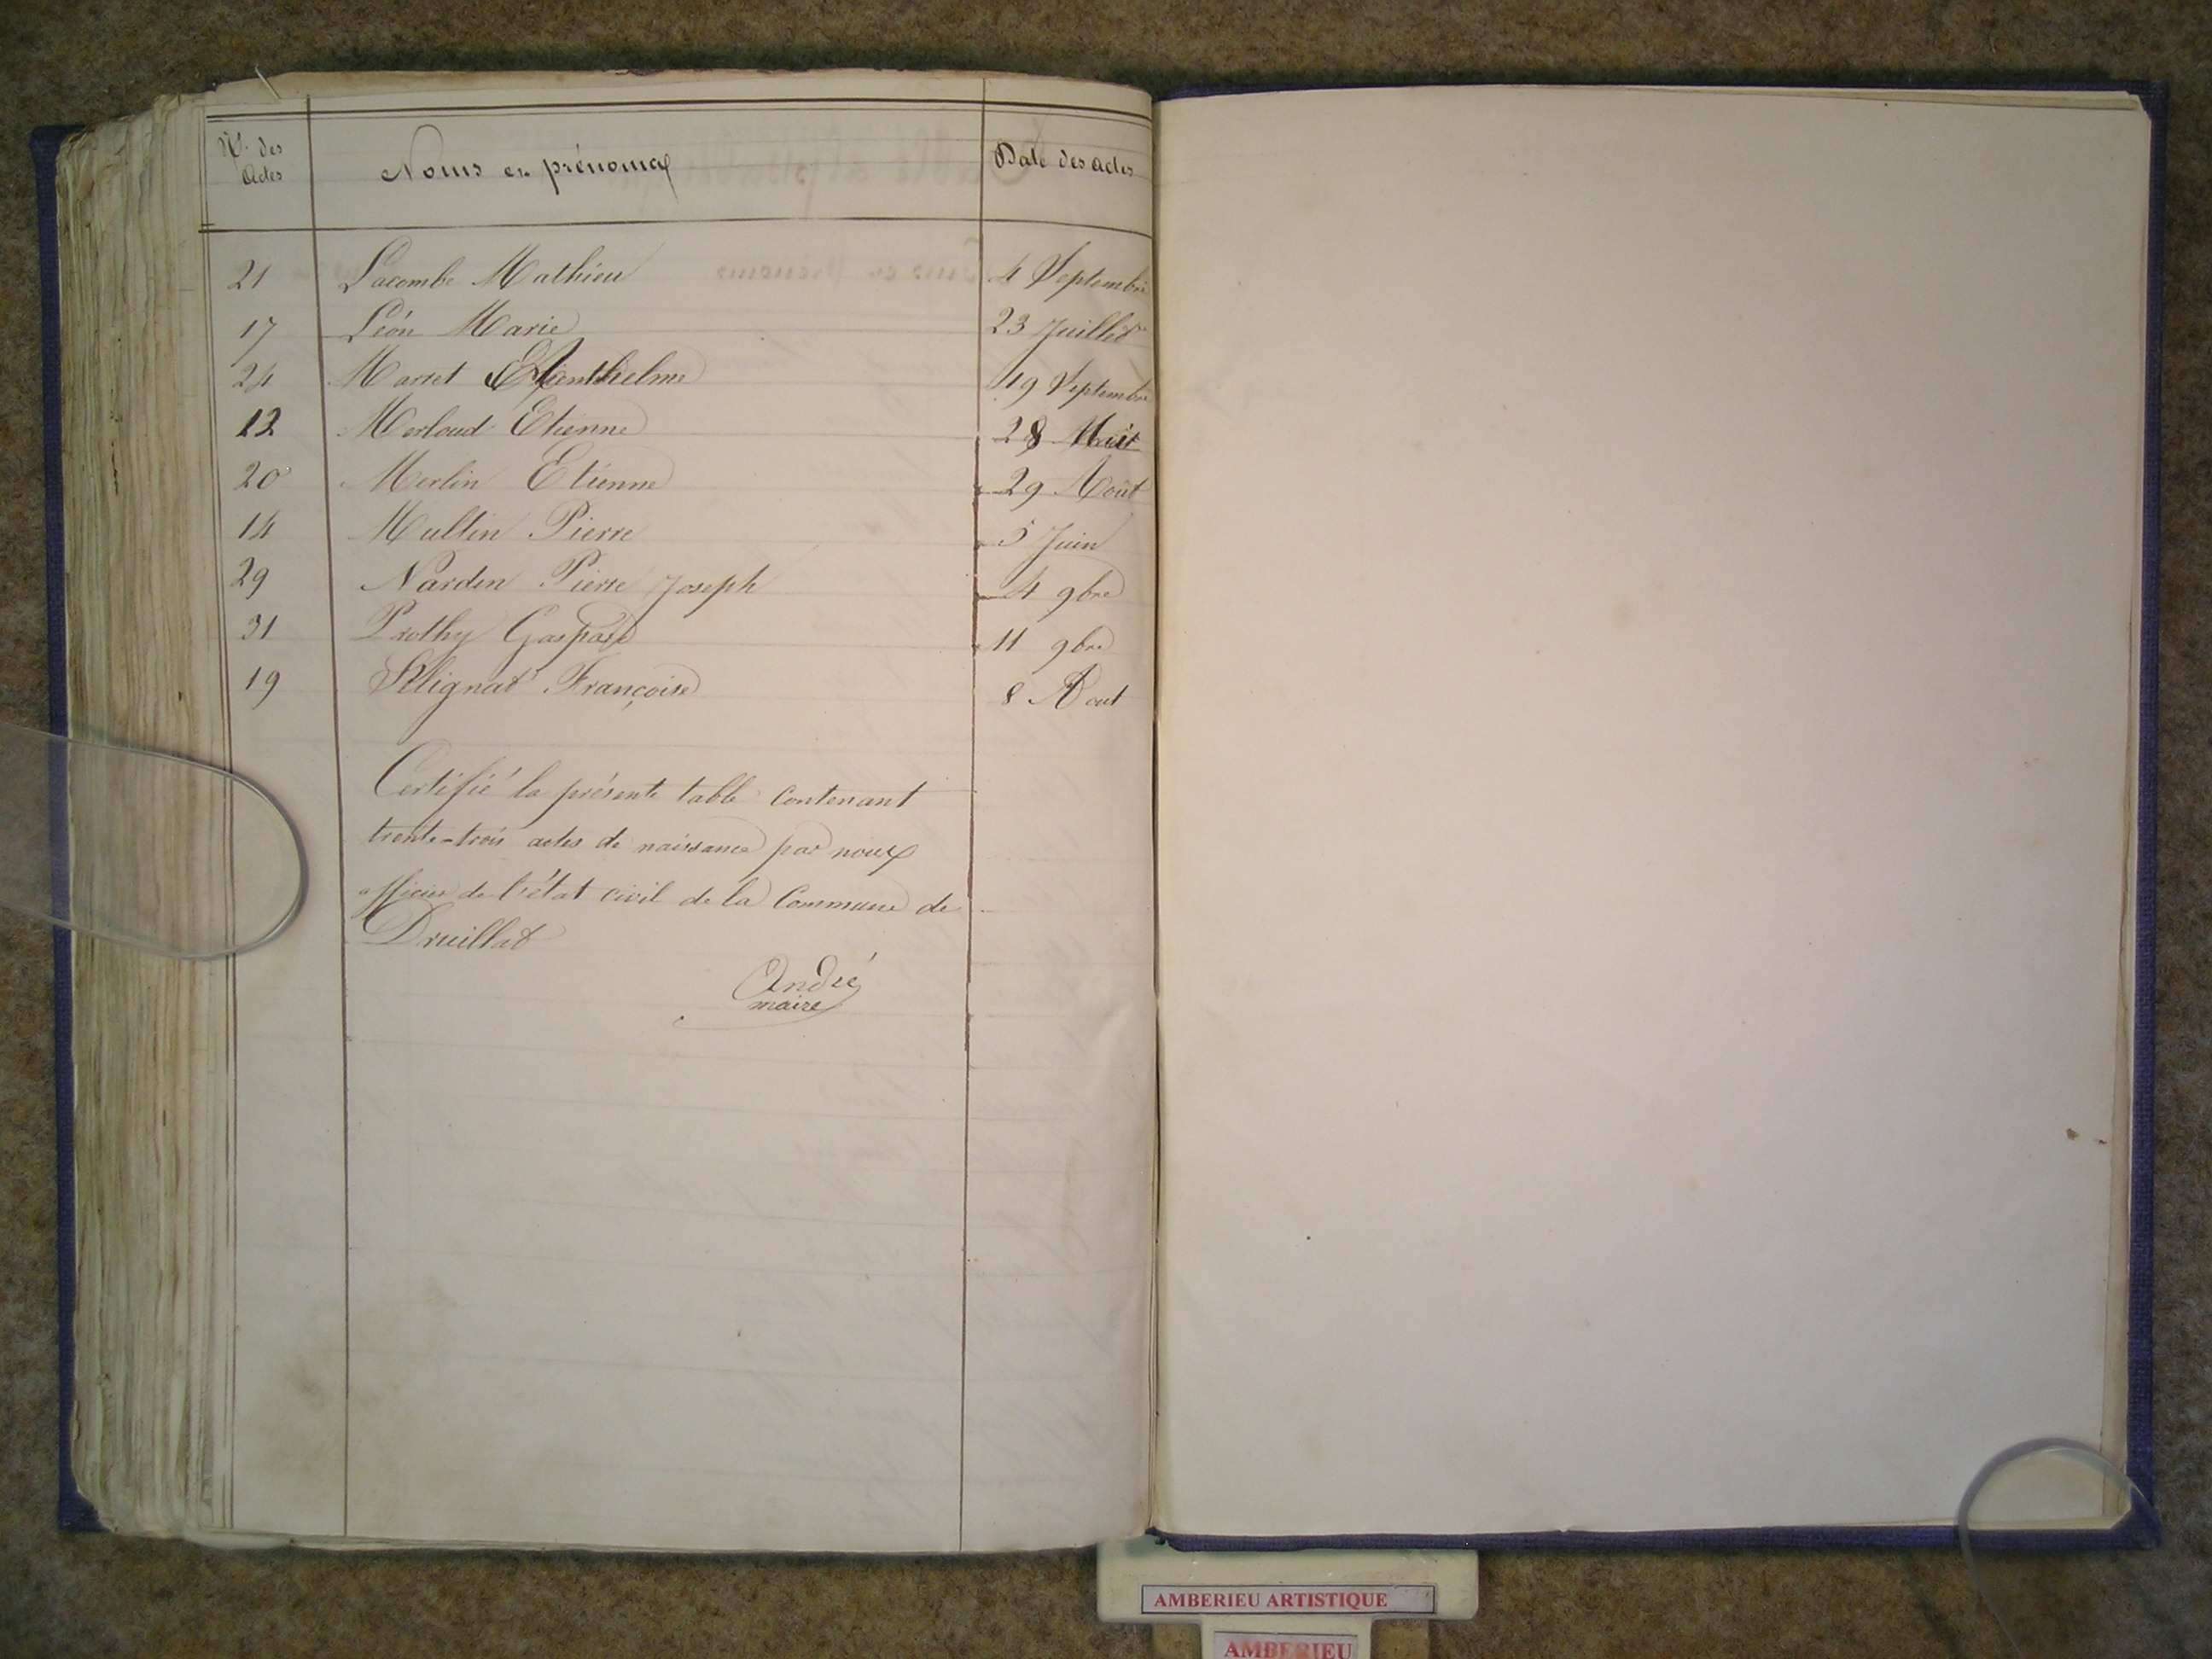 N.º des Actes Noms et prénoms Date des actes
21 Lacombe Mathieu 4 Septembre
17 Léon Marie 23 Juillet
24 Marret Anthelme 19 Septembre
12 Merloud Etienne 28
20 Merlin Etienne 29 Août
14 Multin Pierre 5 Juin
29 Nardin Pierre Joseph 4 9bre
31 Prothy Gaspard 11 9bre
19 Sélignat Françoise 8 Aout
Certifié la présente table contenant
trente-trois actes de naissance par nous
officier de l'état civil de la Commune de
Druillat
André
maire
AMBERIEU ARTISTIQUE
AMBERIEU